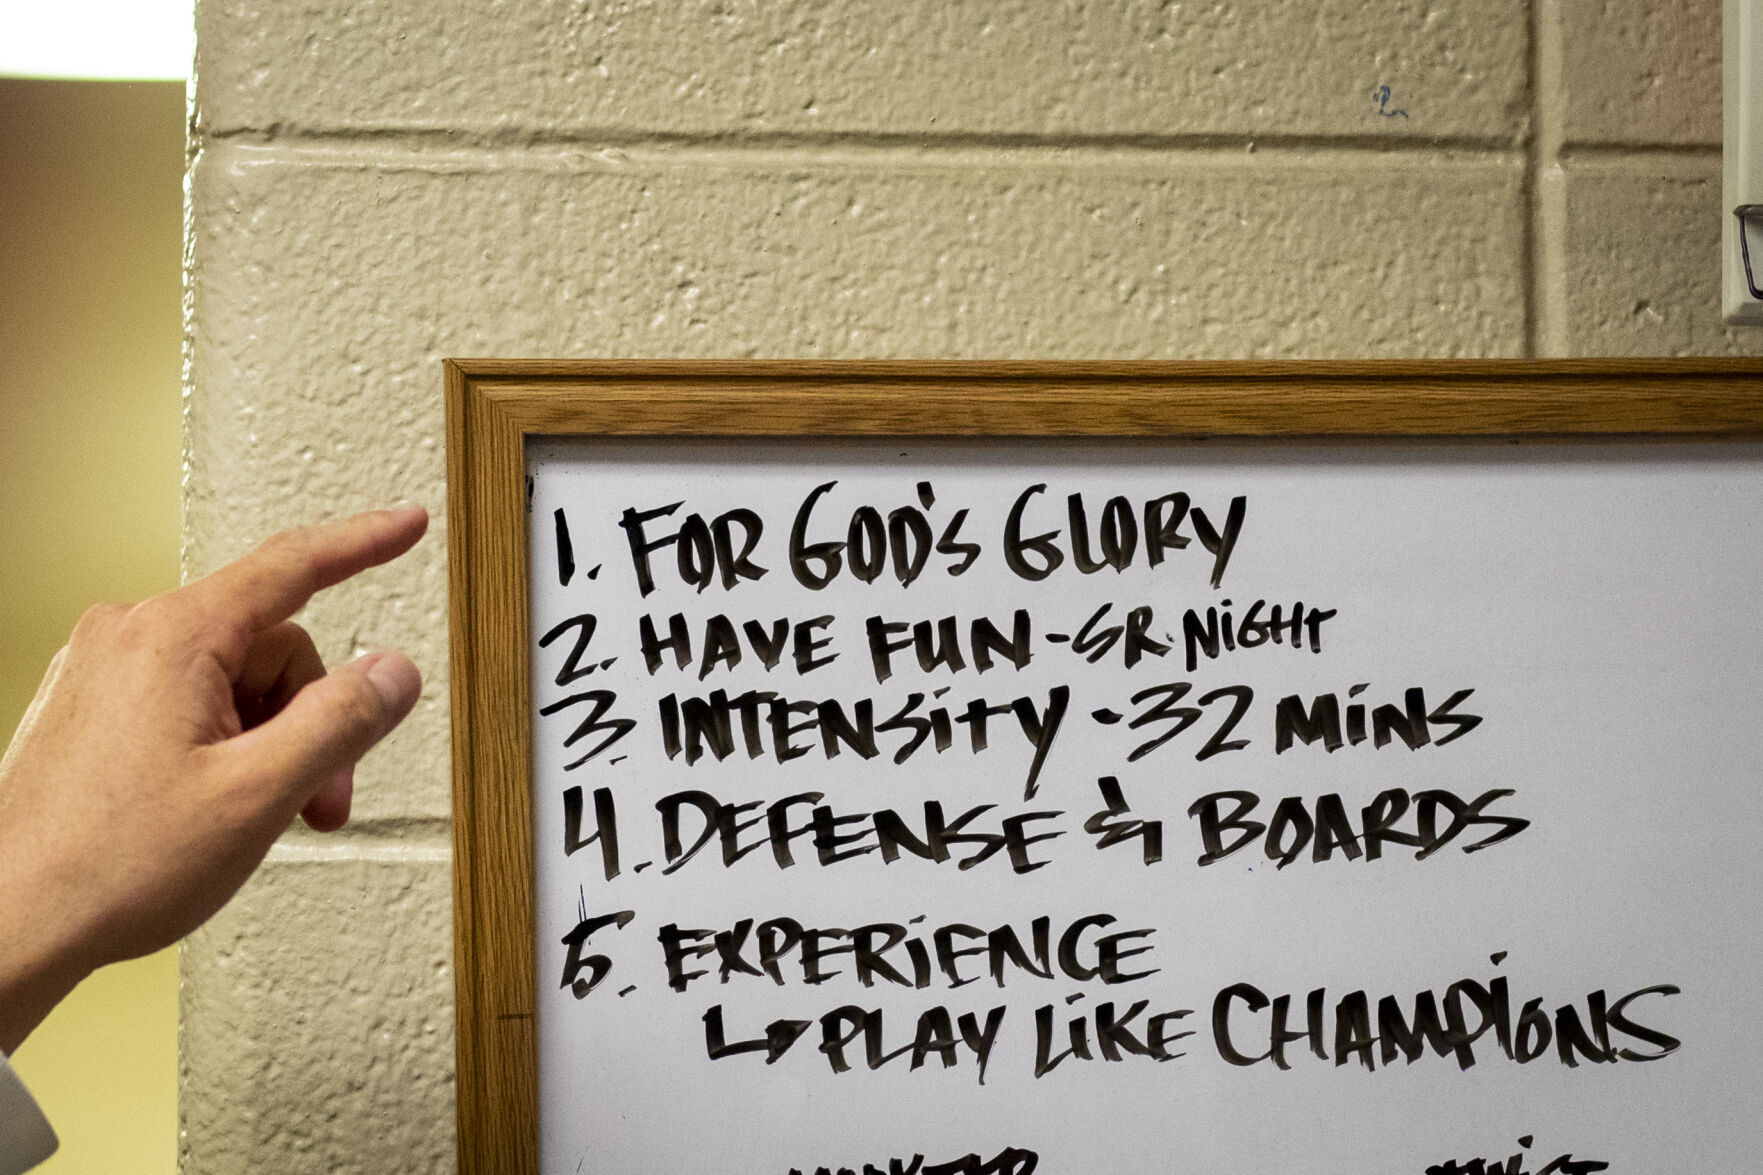 2
1. FOR GOD'S GLORY
2. HAVE FUN - SR. NIGHT
3. INTENSITY - 32 MINS
4. DEFENSE & BOARDS
5. EXPERIENCE
↳ PLAY LIKE CHAMPIONS